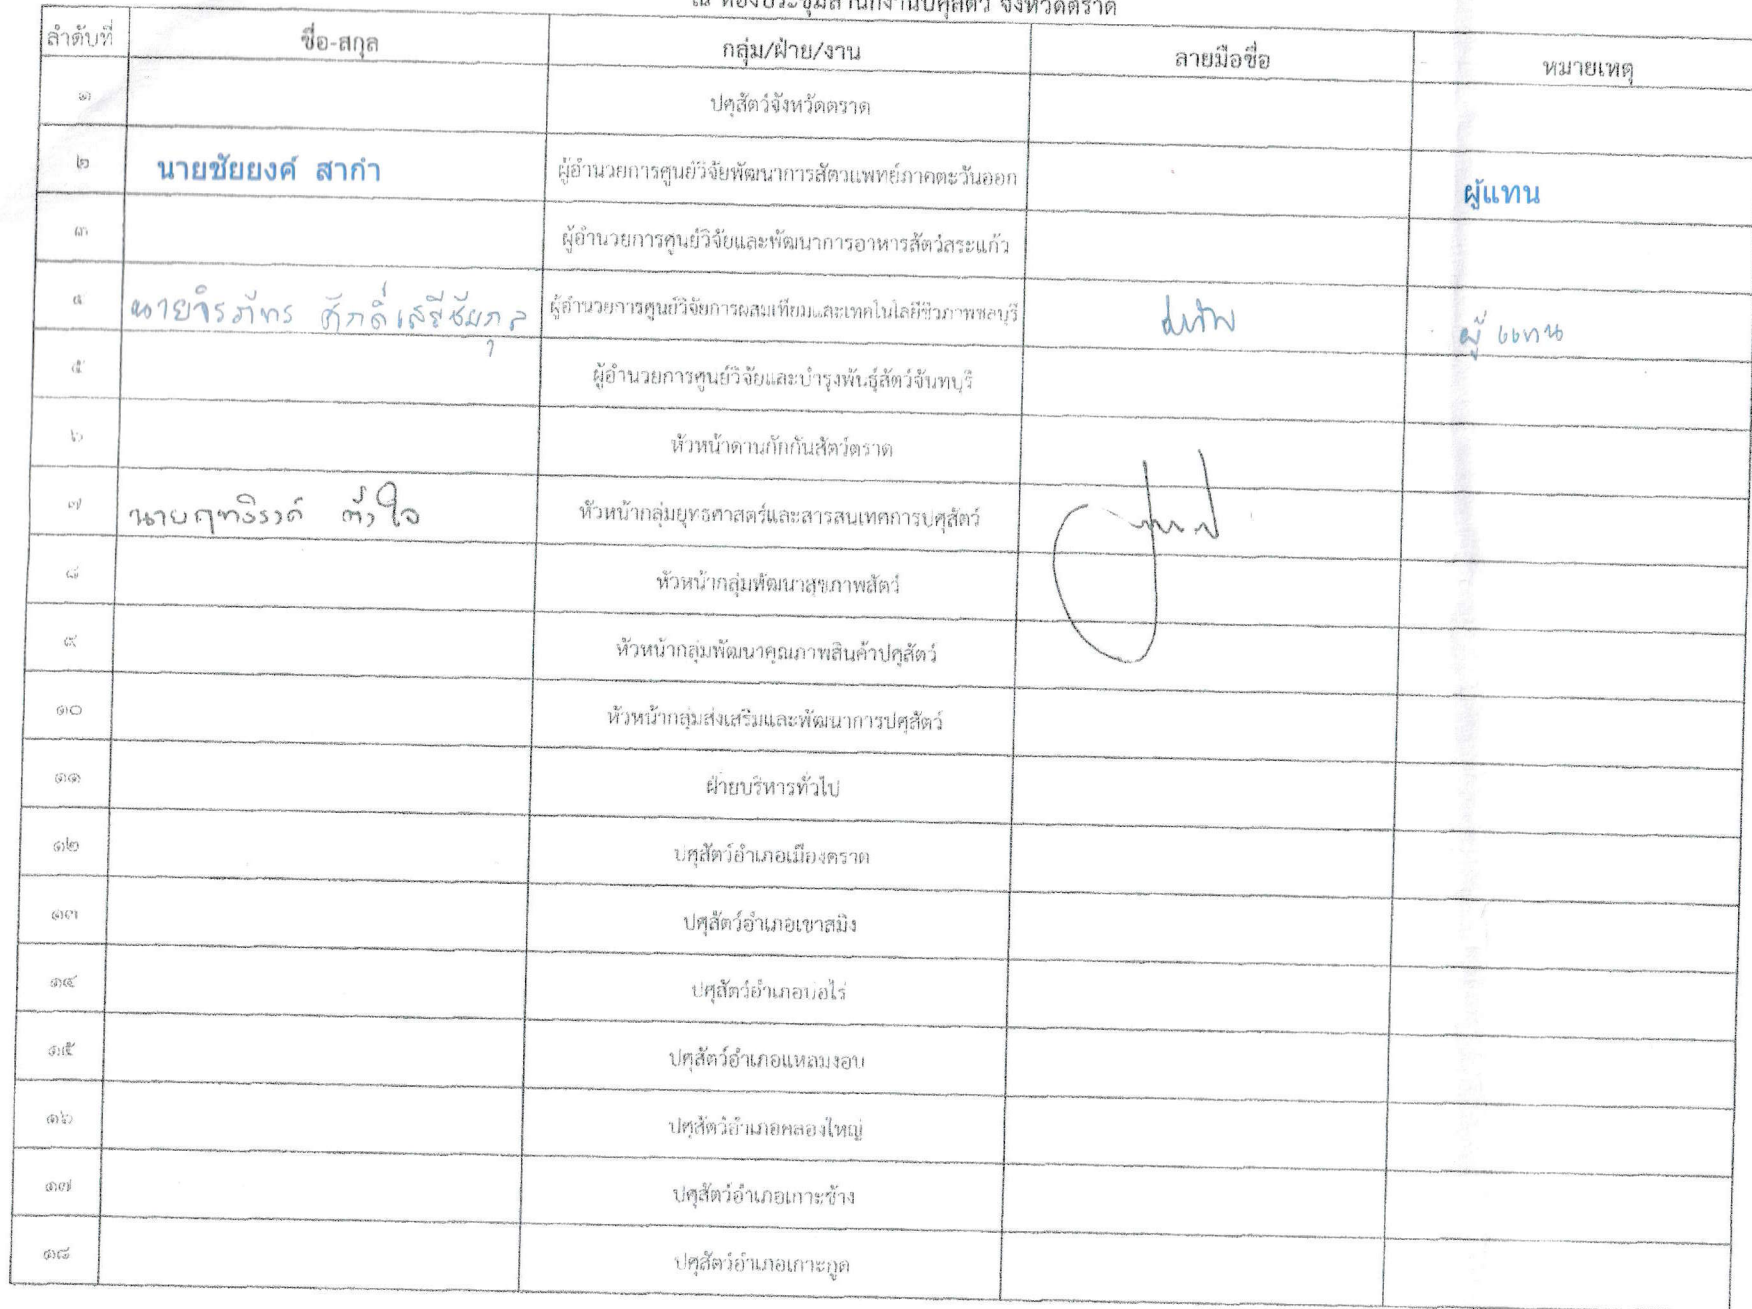 ณ ห้องประชุมสำนักงานปศุสัตว์ จังหวัดตราด
ลำดับที่ ชื่อ-สกุล กลุ่ม/ฝ่าย/งาน ลายมือชื่อ หมายเหตุ
๑ ปศุสัตว์จังหวัดตราด
๒ นายชัยยงค์ สากำ ผู้อำนวยการศูนย์วิจัยพัฒนาการสัตวแพทย์ภาคตะวันออก ผู้แทน
๓ ผู้อำนวยการศูนย์วิจัยและพัฒนาการอาหารสัตว์สระแก้ว
๔ นายจิรภัทร ศักดิ์เสรีชัยกุล ผู้อำนวยการศูนย์วิจัยการผสมเทียมและเทคโนโลยีชีวภาพชลบุรี ผู้แทน
๕ ผู้อำนวยการศูนย์วิจัยและบำรุงพันธุ์สัตว์จันทบุรี
๖ หัวหน้าด่านกักกันสัตว์ตราด
๗ นายฤทธิรงค์ หัวหน้ากลุ่มยุทธศาสตร์และสารสนเทศการปศุสัตว์
๘ หัวหน้ากลุ่มพัฒนาสุขภาพสัตว์
๙ หัวหน้ากลุ่มพัฒนาคุณภาพสินค้าปศุสัตว์
๑๐ หัวหน้ากลุ่มส่งเสริมและพัฒนาการปศุสัตว์
๑๑ ฝ่ายบริหารทั่วไป
๑๒ ปศุสัตว์อำเภอเมืองตราด
๑๓ ปศุสัตว์อำเภอเขาสมิง
๑๔ ปศุสัตว์อำเภอบ่อไร่
๑๕ ปศุสัตว์อำเภอแหลมงอบ
๑๖ ปศุสัตว์อำเภอคลองใหญ่
๑๗ ปศุสัตว์อำเภอเกาะช้าง
๑๘ ปศุสัตว์อำเภอเกาะกูด